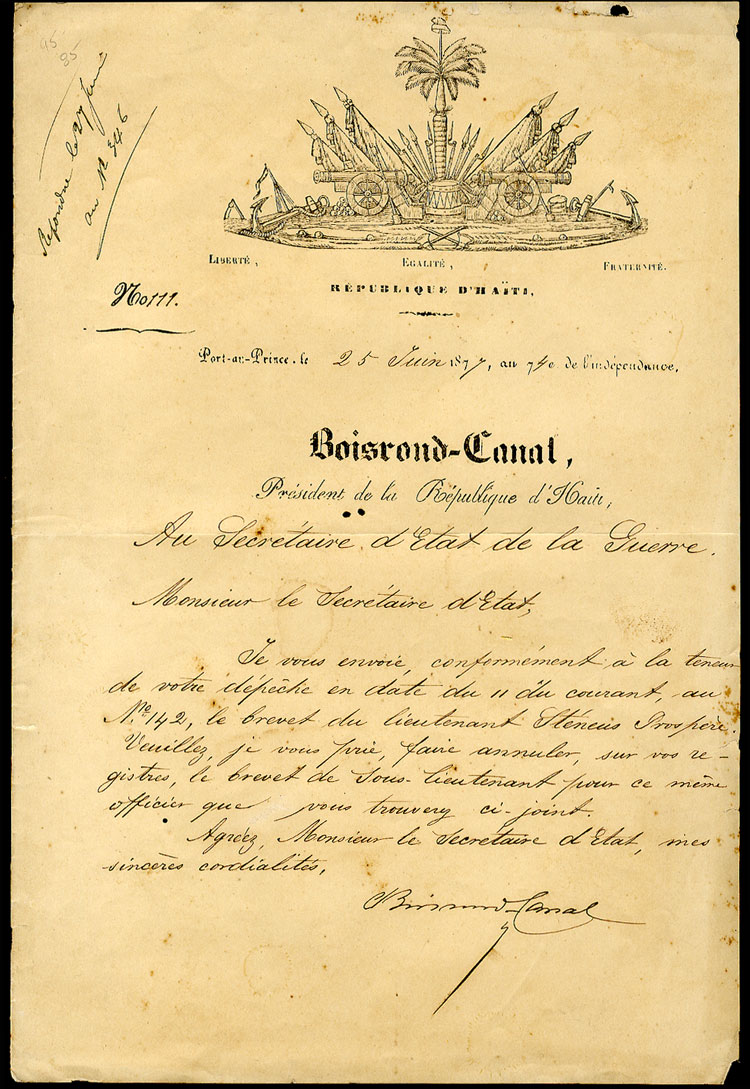 45
85
Repondue le 27 juin
au Nº 346
LIBERTÉ, EGALITÉ, FRATERNITÉ.
RÉPUBLIQUE D'HAÏTI.
No 111.
Port-au-Prince, le 25 Juin 1877, an 74e de l'indépendance.
Boisrond-Canal,
Président de la République d'Haïti,
Au Secrétaire d'Etat de la Guerre.
Monsieur le Secrétaire d'Etat,
Je vous envoie, conformément à la teneur
de votre dépêche en date du 11 du courant, au
No. 142, le brevet du lieutenant Sténeus Prospère.
Veuillez, je vous prie, faire annuler, sur vos re-
gistres, le brevet de Sous-lieutenant pour ce même
officier que vous trouverez ci-joint.
Agréez, Monsieur le Secrétaire d'Etat, mes
sincères cordialités,
Boisrond-Canal